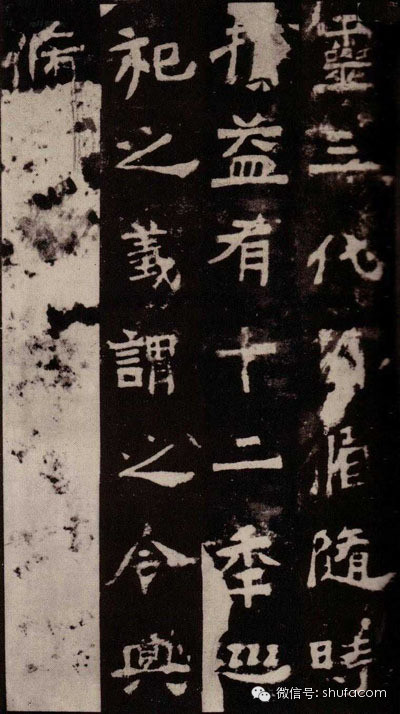 靈三代脩隨時
損益有十二秊巡
祀之義謂之令典
微信号: shufacom